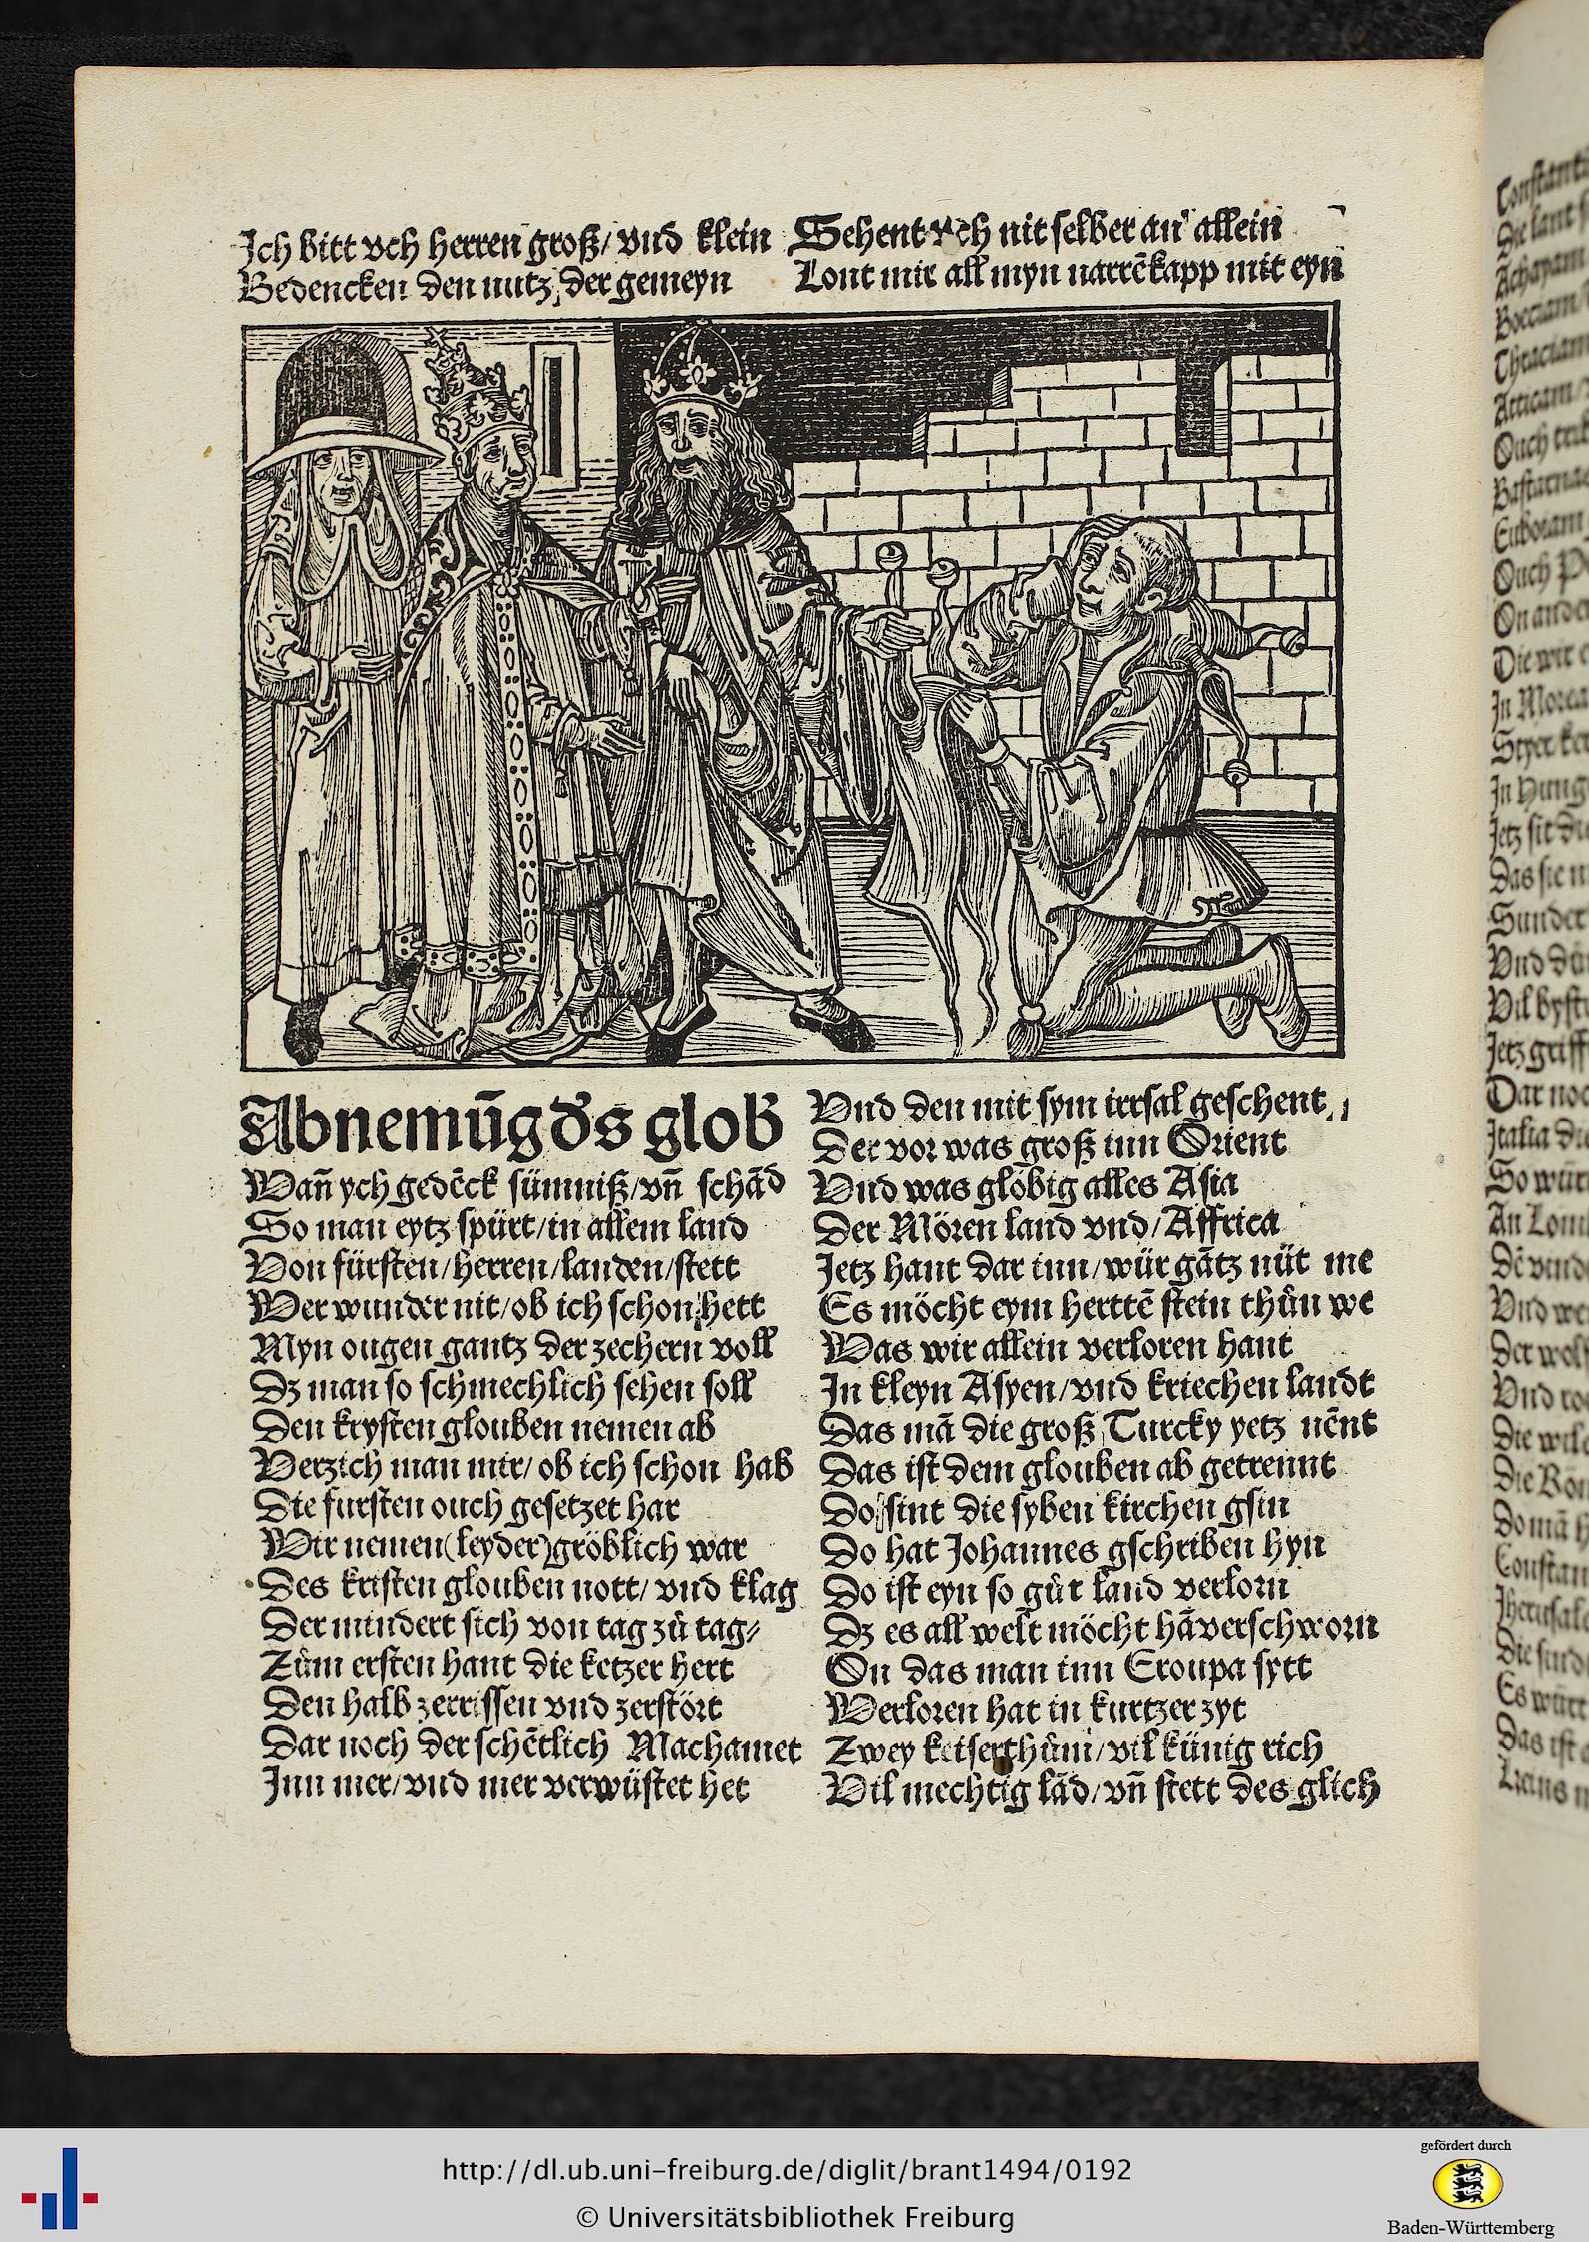 Ich bitt vch herren groß/ vnd klein
Bedencken den nutz der gemeyn
Sehent vch nit selber an allein
Lont mir all myn narrẽkapp mit eyn
Abnemũg ds glob
Wañ ych gedẽck sümniß/vñ schãd
So man eytz spürt/in allem land
Von fürsten/herren/landen/stett
Wer wunder nit/ob ich schon hett
Myn ougen gantz der zechern voll
Dz man so schmechlich sehen soll
Den krysten glouben nemen ab
Verzich man mir/ ob ich schon hab
Die fursten ouch gesetzet har
Wir nemen(leyder)gröblich war
Des kristen glouben nott/ vnd klag
Der mindert sich von tag zů tag/
Zům ersten hant die ketzer hert
Den halb zerrissen vnd zerstört
Dar noch der schẽtlich Machamet
Inn mer/vnd mer verwüstet het
Vnd den mit sym irrsal geschent
Der vor was groß inn Orient
Vnd was glöbig alles Asia
Der Mören land vnd/Affrica
Jetz hant dar inn/wür gãtz nüt me
Es möcht eym herttẽ stein thůn we
Was wir allein verloren hant
In kleyn Asyen/vnd kriechen landt
Das mã die groß Turcky yetz nẽnt
Das ist dem glouben ab getrennt
Do sint die syben kirchen gsin
Do hat Johannes gschriben hyn
Do ist eyn so gůt land verlorn
Dz es all welt möcht hã verschworn
On das man inn Eroupa sytt
Verloren hat in kurtzer zyt
Zwey keiserthům/vil künig rich
Vil mechtig lãd/vñ stett des glich
Die wir
In Morea
http://dl.ub.uni-freiburg.de/diglit/brant1494/0192
© Universitätsbibliothek Freiburg
gefördert durch
Baden-Württemberg